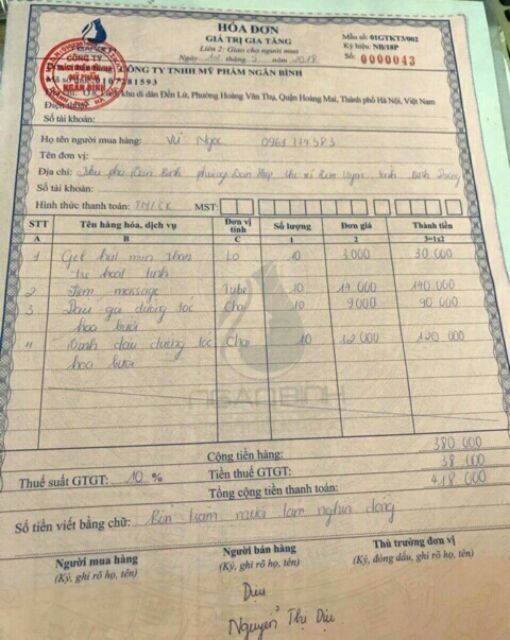 HÓA ĐƠN
GIÁ TRỊ GIA TĂNG
Liên 2: Giao cho người mua
Mẫu số: 01GTKT3/002
Ký hiệu: NB/18P
Số: 0000043
CÔNG TY TNHH MỸ PHẨM NGÂN BÌNH
Mã số 0107581593
khu di dân Đền Lừ, Phường Hoàng Văn Thụ, Quận Hoàng Mai, Thành phố Hà Nội, Việt Nam
Điện thoại:
Số tài khoản:
Họ tên người mua hàng: Vũ Ngọc
Tên đơn vị:
Địa chỉ:
Số tài khoản:
Hình thức thanh toán: TM/CK MST:
STT Tên hàng hóa, dịch vụ Đơn vị tính Số lượng Đơn giá Thành tiền
A B C 1 2 3=1x2
1 Gel hút mụn than Lo 10 3.000 30 000
tre hoạt tính
2 massage Tube 10 14 000 140 000
3 Dầu gội dưỡng tóc Chai 10 9.000 90 000
hoa bưởi
4 Tinh dầu dưỡng tóc Chai 10 12 000 120 000
hoa bưởi
NGANBINH
Cộng tiền hàng: 380 000
Thuế suất GTGT: 10 % Tiền thuế GTGT: 38 000
Tổng cộng tiền thanh toán: 418 000
Số tiền viết bằng chữ: Bốn trăm mười tám nghìn đồng
Người mua hàng Người bán hàng Thủ trưởng đơn vị
(Ký, ghi rõ họ, tên) (Ký, ghi rõ họ, tên) (Ký, đóng dấu, ghi rõ họ, tên)
Dịu
Nguyễn Thị Dịu